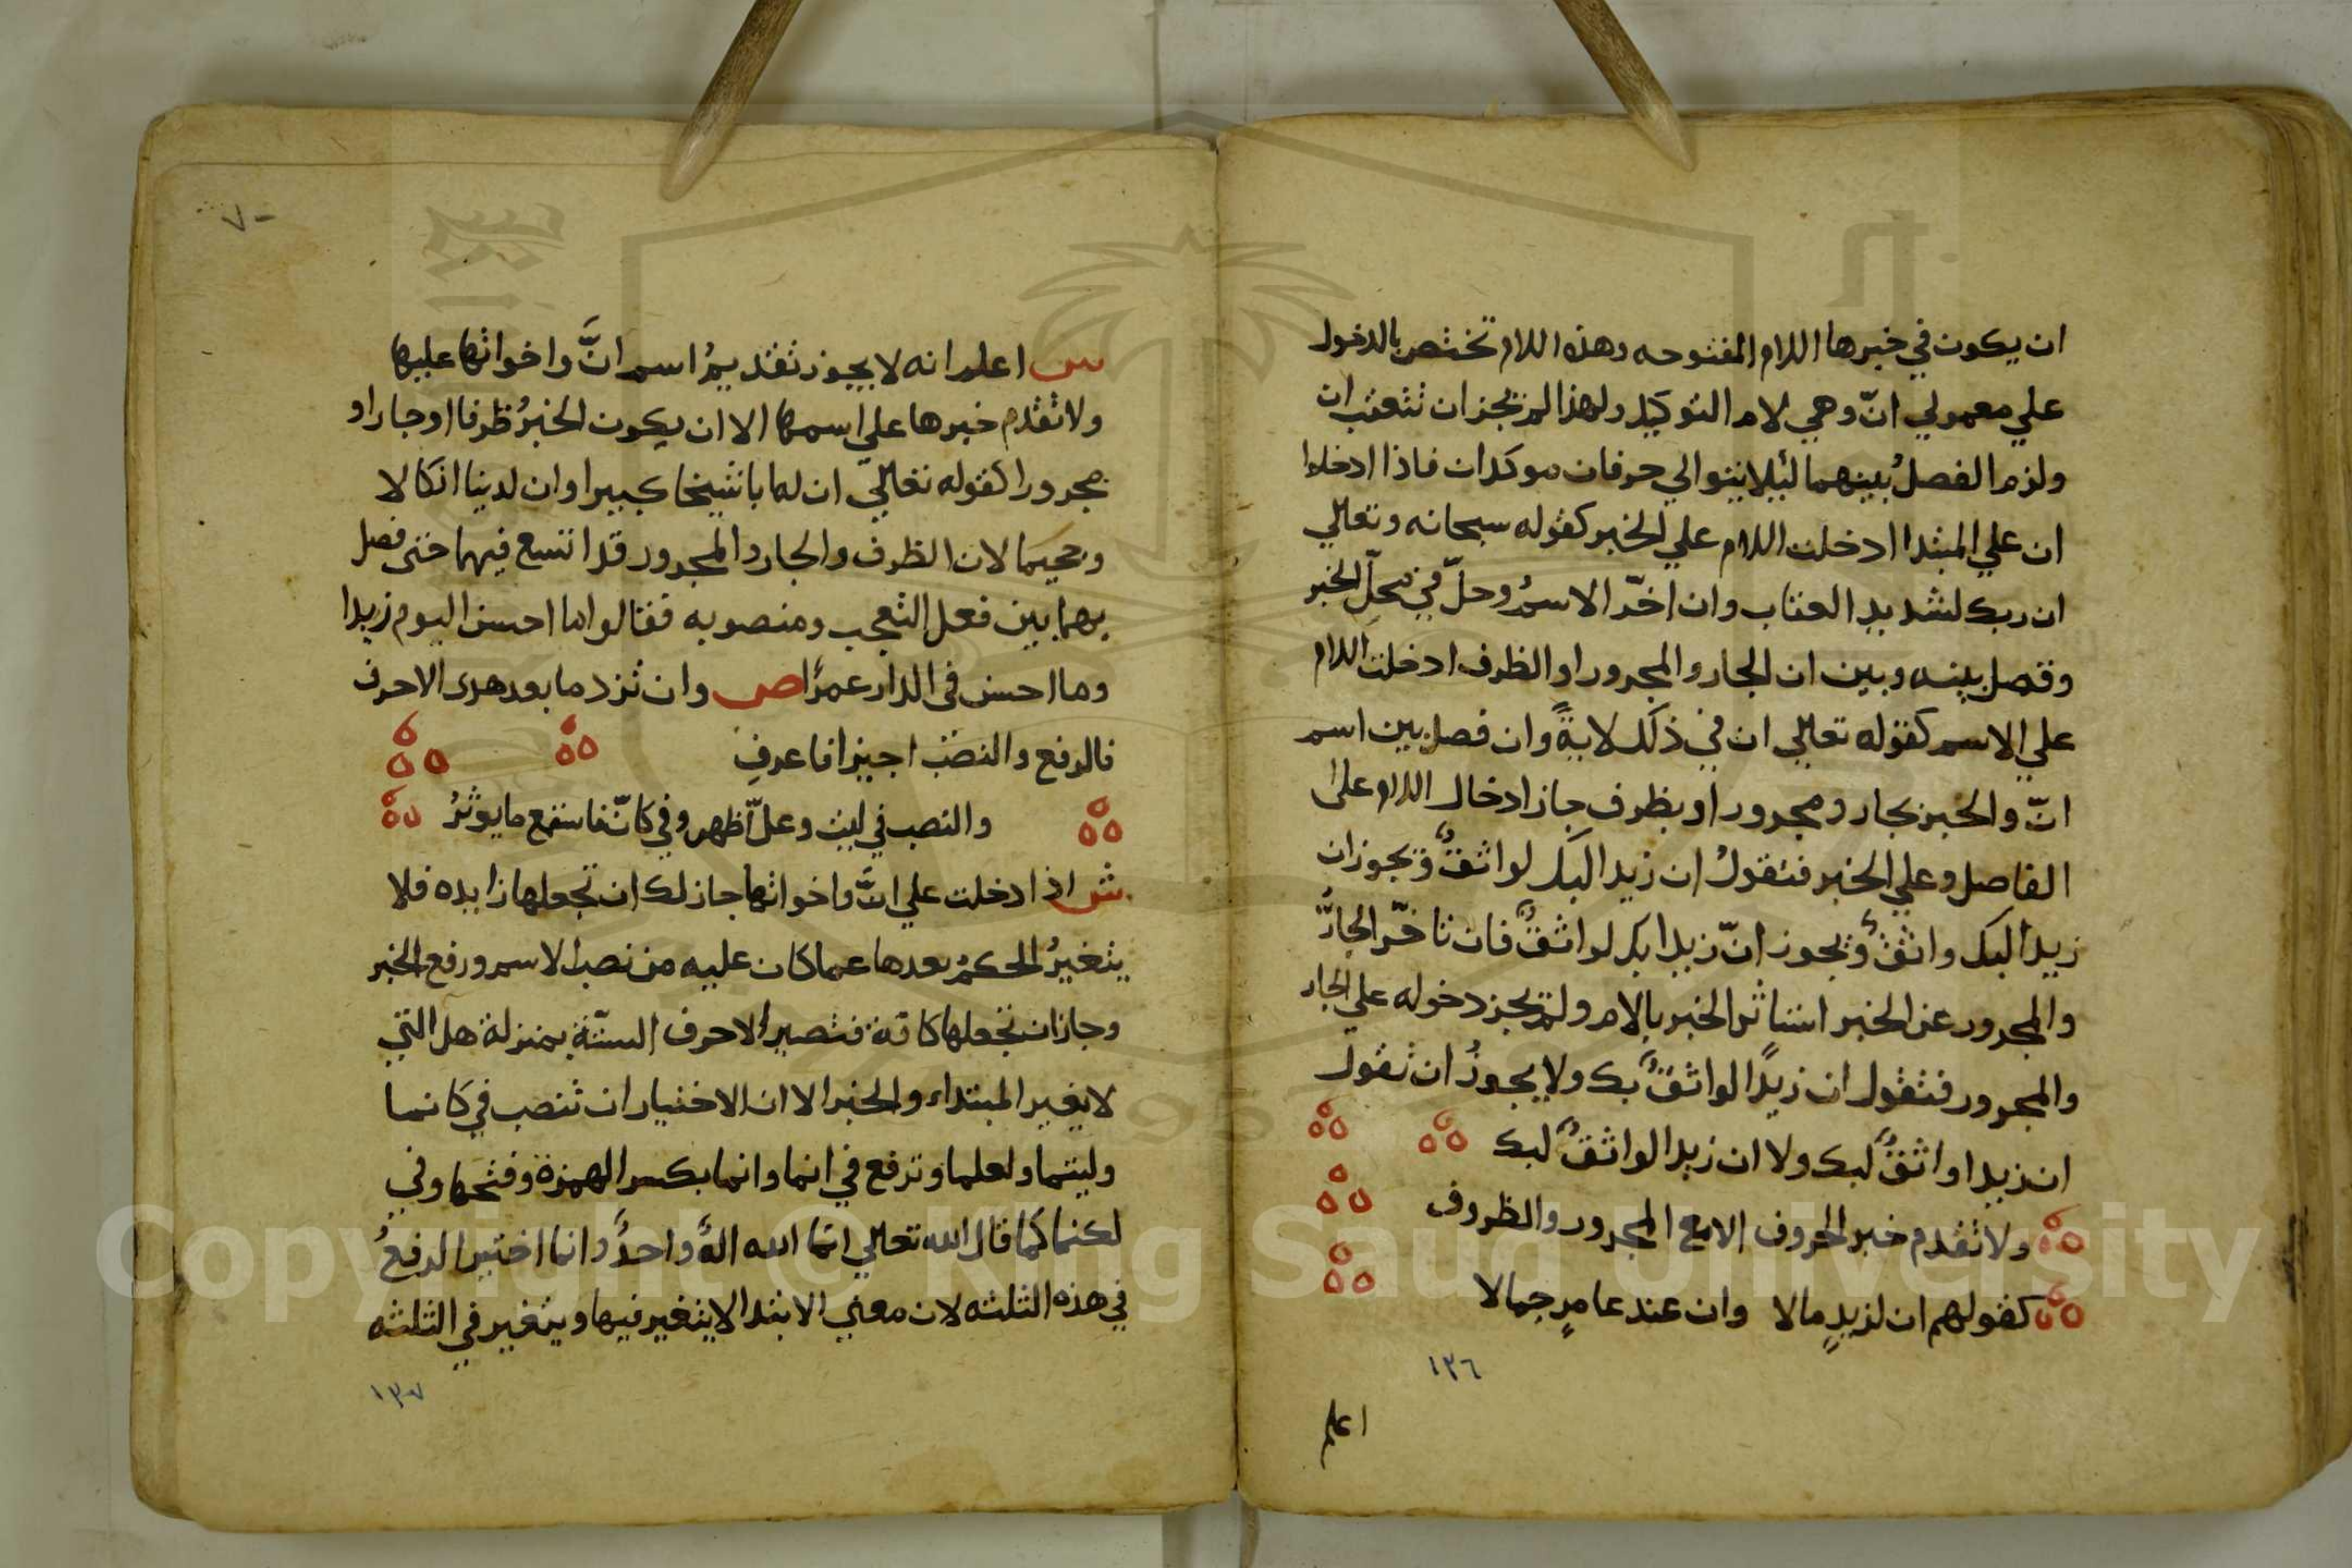 ان يكون في خبرها اللام المفتوحه وهذه اللام تختص بالدخول
علي معمولي انّ وهي لام التوكيد ولهذا لم يجز ان تتعقب ان
ولزم الفصلُ بينهما لئلا يتوالي حرفان موكدان فاذا ادخلوا
ان علي المبتدا ادخلت اللام علي الخبر كقوله سبحانه وتعالي
ان ربك لشديد العقاب وان اخّر الاسمُ وحلّ في محلّ الخبر
وفصل بينه وبين ان الجار والمجرور او الظرف ادخلت اللام
علي الاسم كقوله تعالي ان في ذلك لايةً وان فصل بين اسم
انّ والخبر بجار ومجرور او بظرف جاز ادخال اللام على
الفاصل وعلي الخبر فتقولُ ان زيدا لبك لواثقٌ ويجوز ان
زيدا لبك واثقٌ ويجوز انّ زيدا بك لواثقٌ فان تاخّر الجارُّ
والمجرور عن الخبر استاثر الخبر بالام ولم يجز دخوله علي الجار
والمجرور فتقول ان زيدًا لواثقٌ بك ولا يجوزُ ان تقول
ان زيدا واثقٌ لبك ولا ان زيدا لواثقٌ لبك
ولا تقدم خبر الحروف الا مع المجرور والظروف
كقولهم ان لزيدٍ مالا وان عند عامرٍ جمالا
١٣٦
اعلم
٧٠
س اعلم انه لا يجوز تقديمُ اسم انَّ واخواتها عليها
ولا تقدم خبرها علي اسمها الا ان يكون الخبرُ ظرفا او جارا و
مجرورا كقوله تعالي ان لها با شيخا كبيرا وان لدينا انكالا
وجحيما لان الظرف والجار والمجرور قد اتسع فيهما حتى فصل
بهما بين فعل التعجب ومنصوبه فقالوا ما احسن اليوم زيدا
وما احسن في الدار عمرًا ص وان تزد ما بعد هذى الاحرف
فالرفع والنصب اجيزا فاعرفِ
والنصب في ليت وعلّ اظهر وفي كانّ فاستمع ما يوثرُ
ش اذا دخلت علي انَّ واخواتها جاز لك ان تجعلها زايده فلا
يتغيرُ الحكمُ بعدها عما كان عليه من نصب الاسم ورفع الخبر
وجاز ان تجعلها كافة فتصير الاحرف الستّة بمنزلة هل التي
لا يغير المبتداء والخبر الا ان الاختيار ان تنصب في كانما
وليتما ولعلما وترفع في انما وانما بكسر الهمزة وفتحها وفي
لكنما كما قال الله تعالي انما الله الهٌ واحدٌ وانما اختير الرفعُ
في هذه الثلثه لان معني الابتدا لا يتغير فيها ويتغير في الثلثه
١٣٧
Copyright © King Saud University